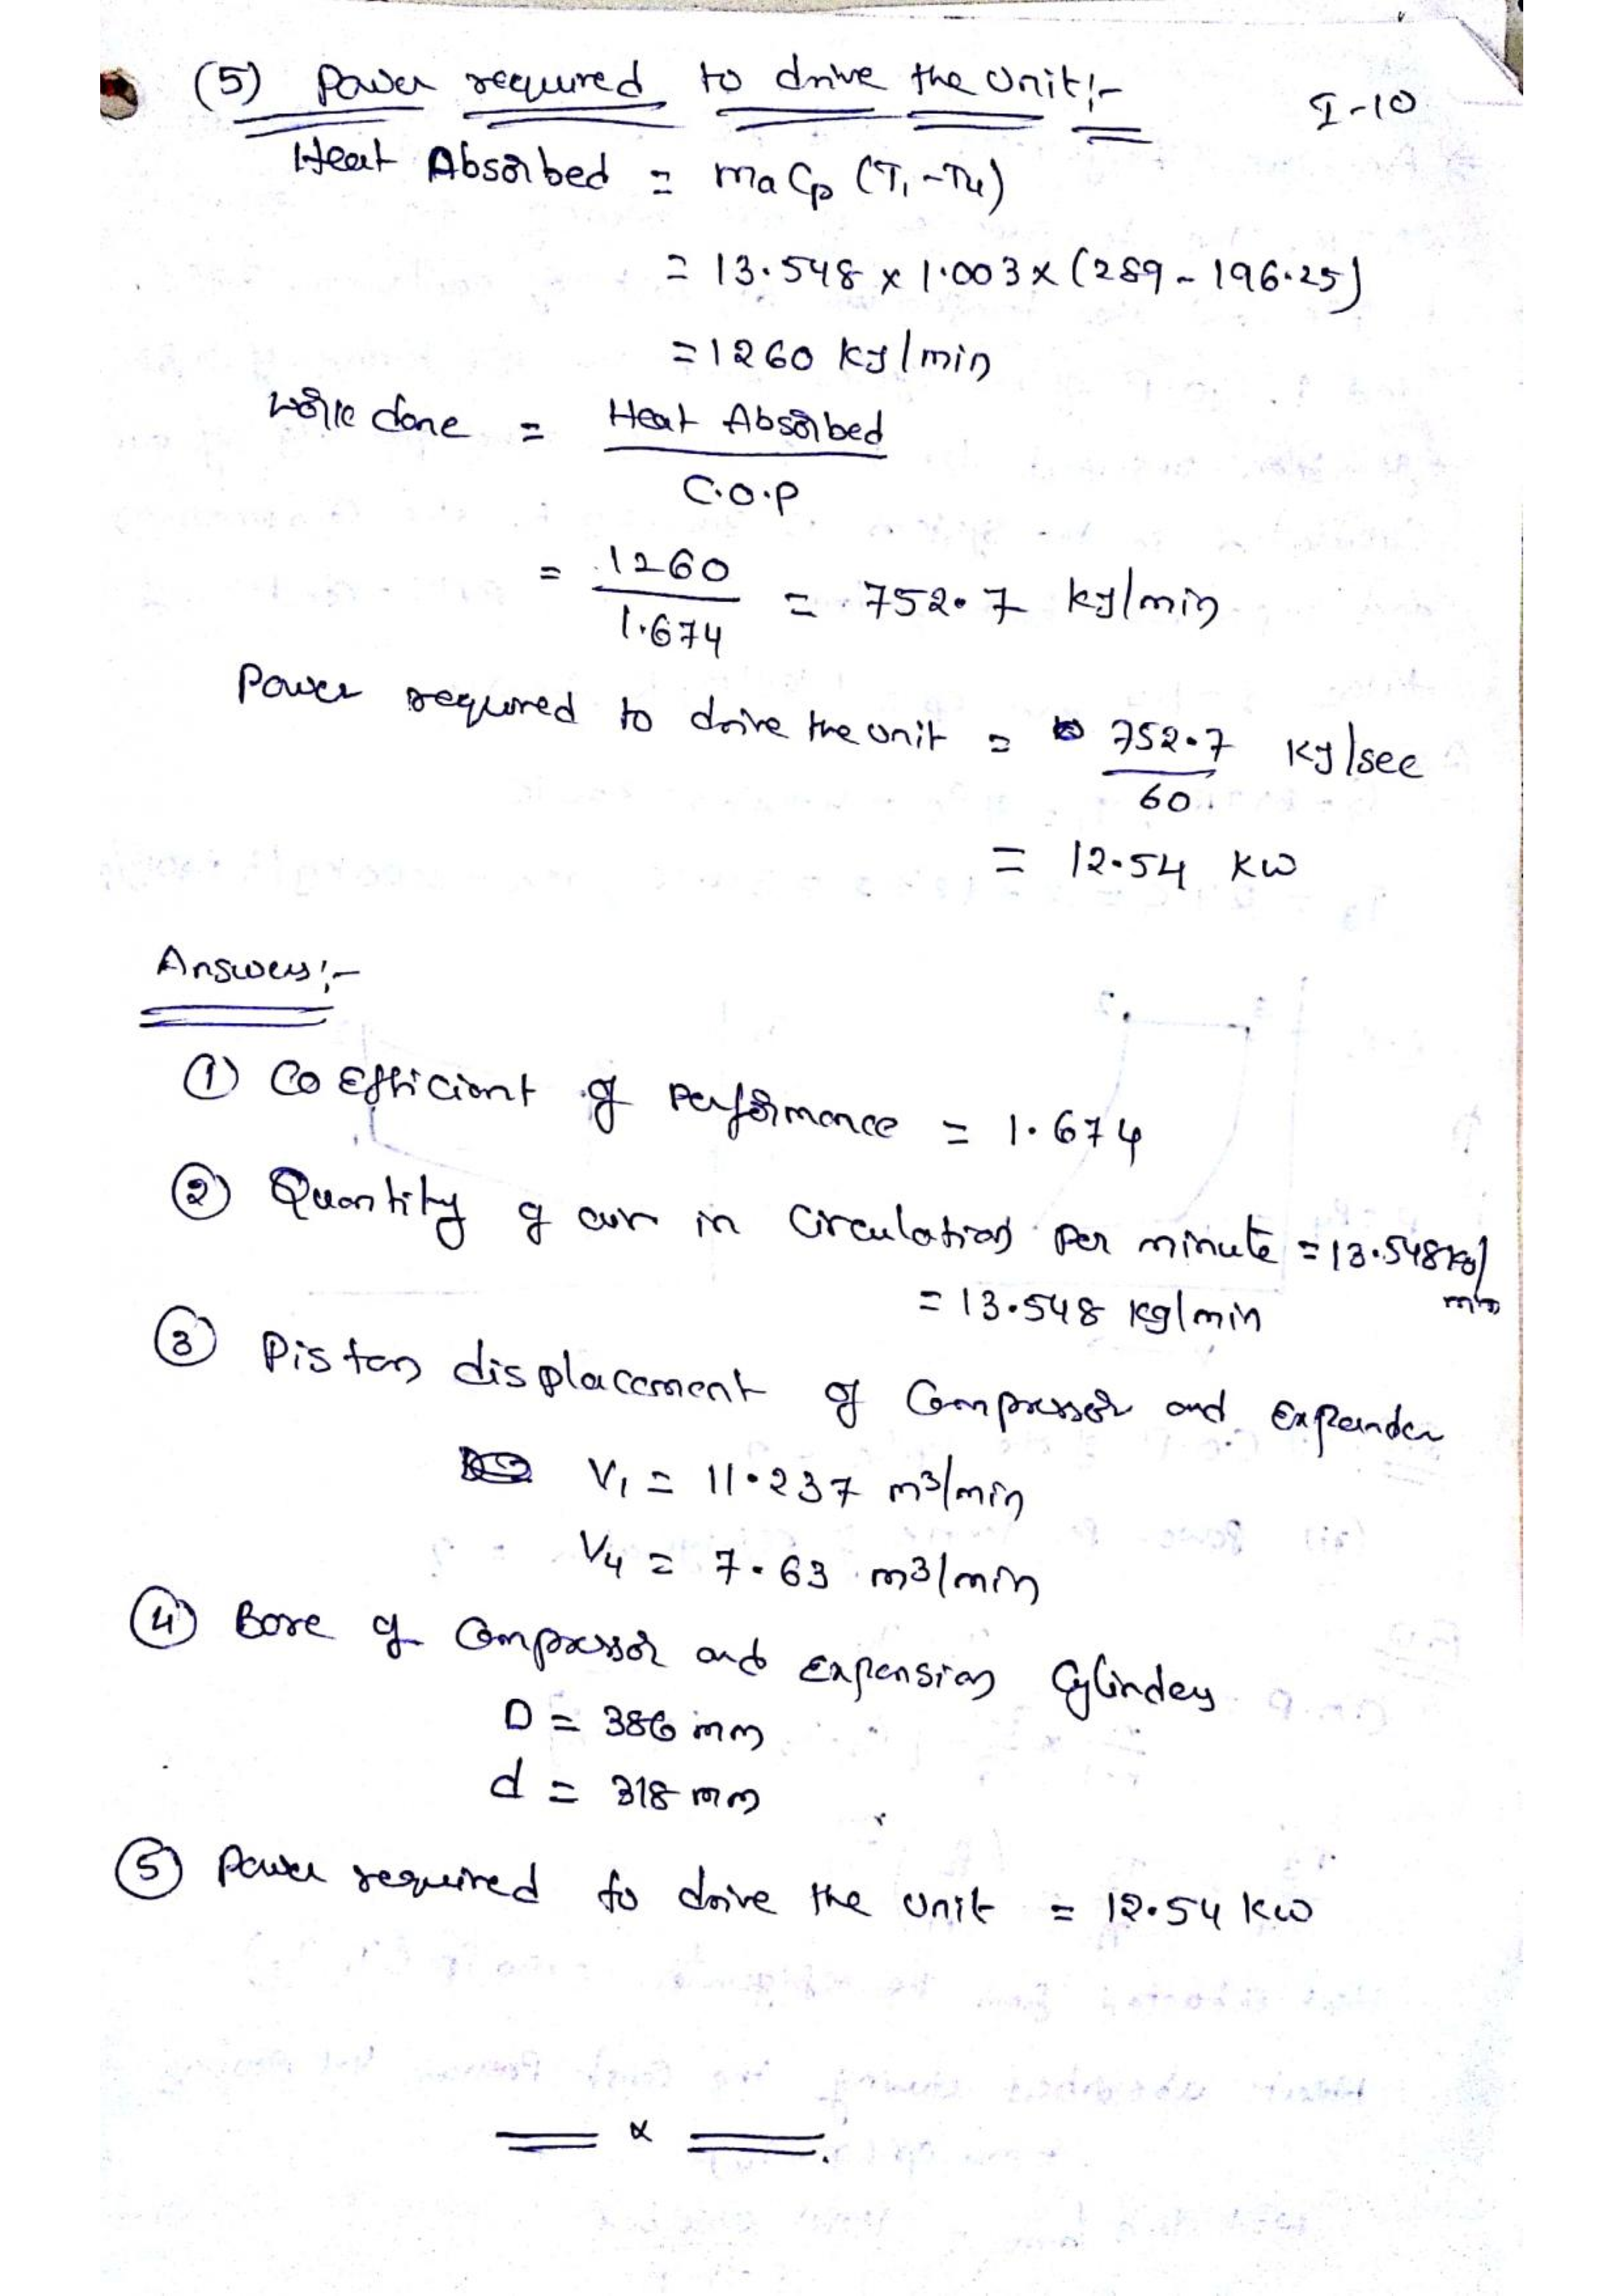 (5) Power required to drive the Unit:-
I-10
Heat Absorbed = ma Cp (T1-T4)
= 13.548 x 1.003 x (289 - 196.25)
= 1260 KJ/min
work done = Heat Absorbed
C.O.P
= 1260 = 752.7 KJ/min
1.674
Power required to drive the unit = 752.7 KJ/sec
60
= 12.54 KW
Answers:-
① Co Efficient of Performance = 1.674
② Quantity of air in Circulation Per minute = 13.548 kg/min
= 13.548 kg/min
③ Piston displacement of Compressor and Expander
V1 = 11.237 m3/min
V4 = 7.63 m3/min
④ Bore of Compressor and Expansion Cylinders
D = 386 mm
d = 318 mm
⑤ Power required to drive the Unit = 12.54 KW
x